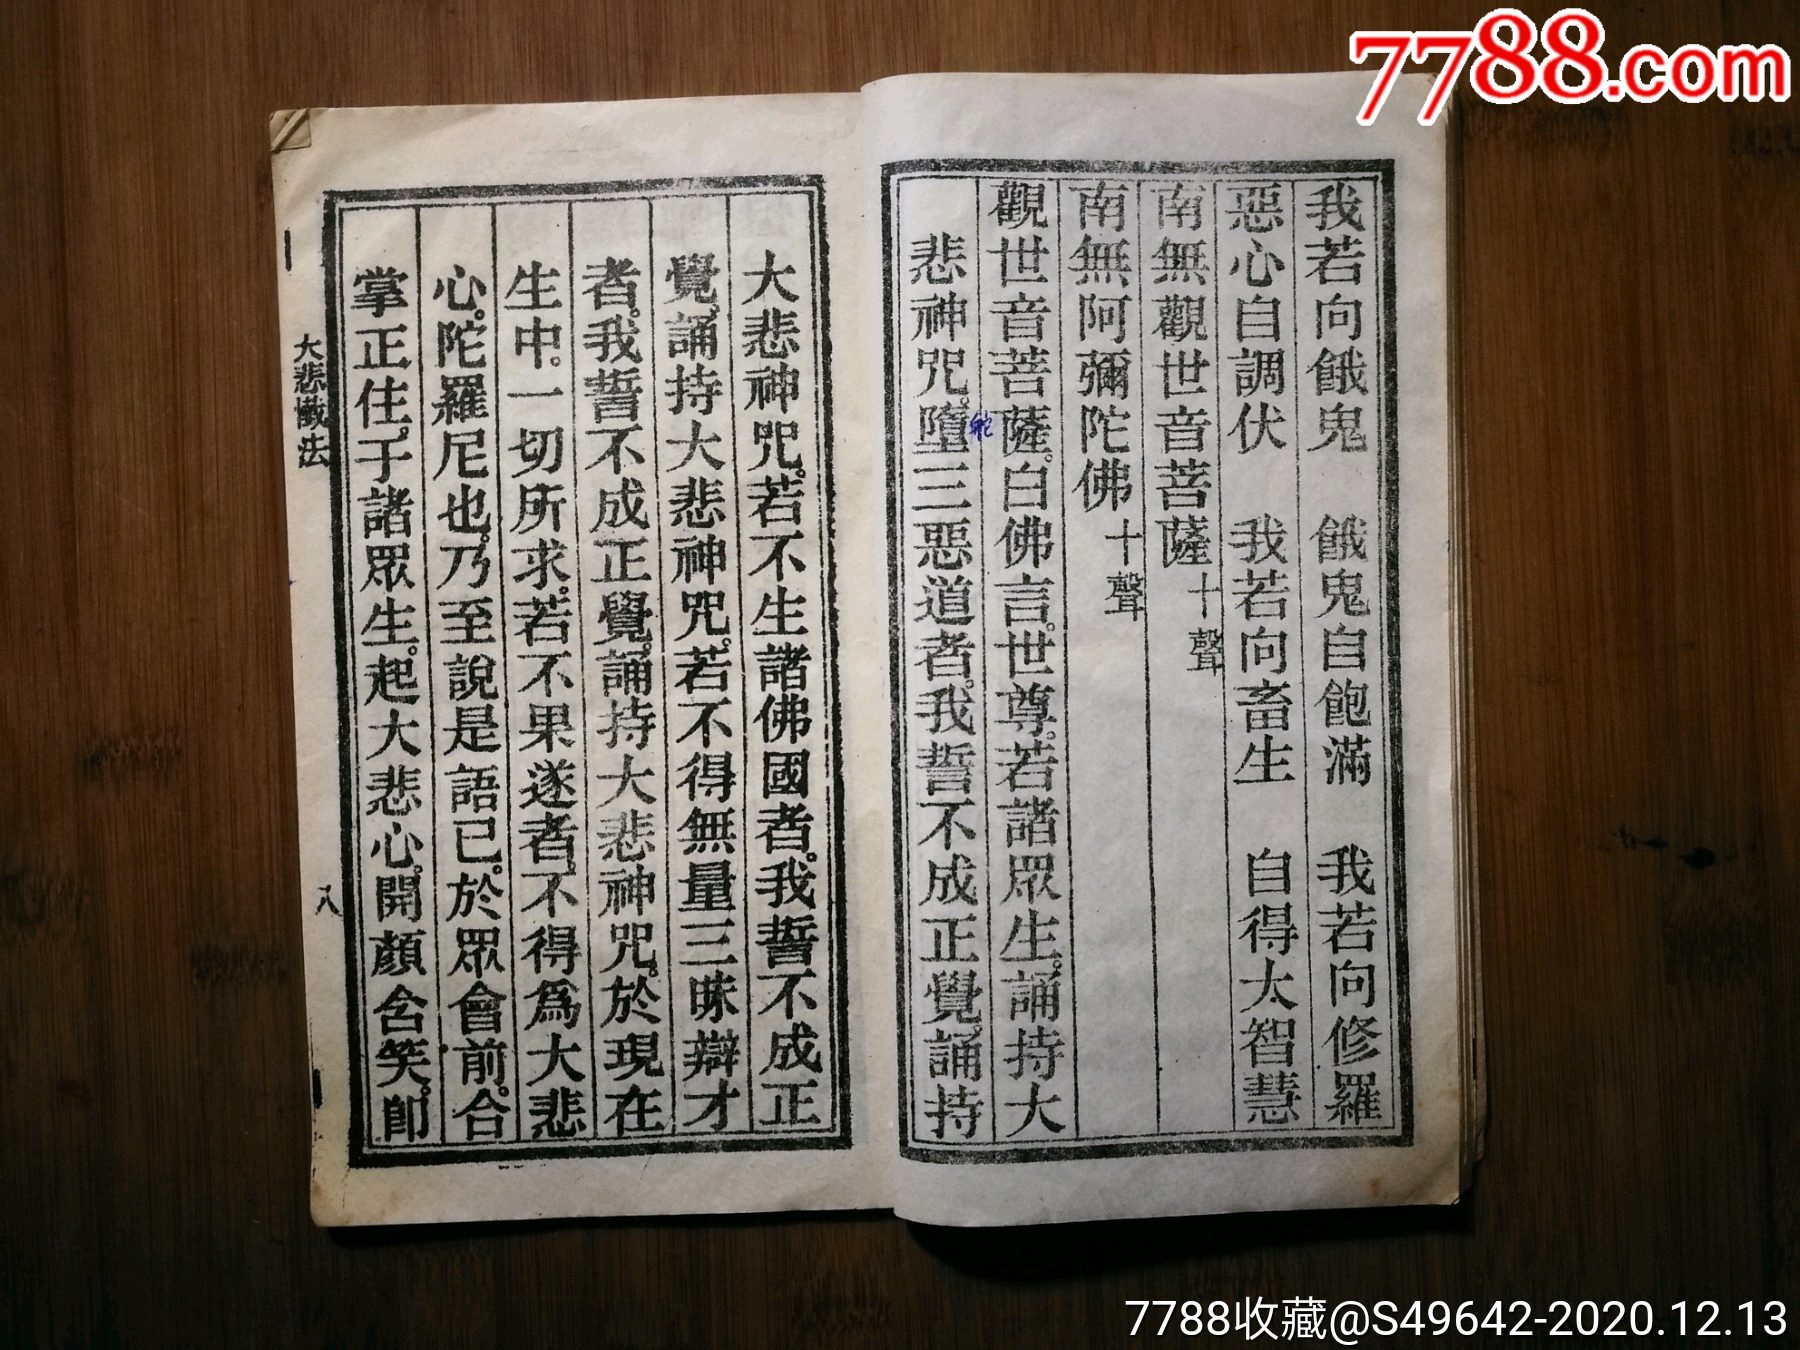 7788.com
我若向餓鬼　餓鬼自飽滿　我若向修羅
惡心自調伏　我若向畜生　自得大智慧
南無觀世音菩薩十聲
南無阿彌陀佛十聲
觀世音菩薩。白佛言。世尊。若諸眾生。誦持大
悲神咒。墮三惡道者。我誓不成正覺。誦持
大悲神咒。若不生諸佛國者。我誓不成正
覺。誦持大悲神咒。若不得無量三昧辯才
者。我誓不成正覺。誦持大悲神咒。於現在
生中。一切所求。若不果遂者。不得為大悲
心。陀羅尼也。乃至說是語已。於眾會前。合
掌正住。于諸眾生。起大悲心。開顏含笑。即
大悲懺法
八
7788收藏@S49642-2020.12.13